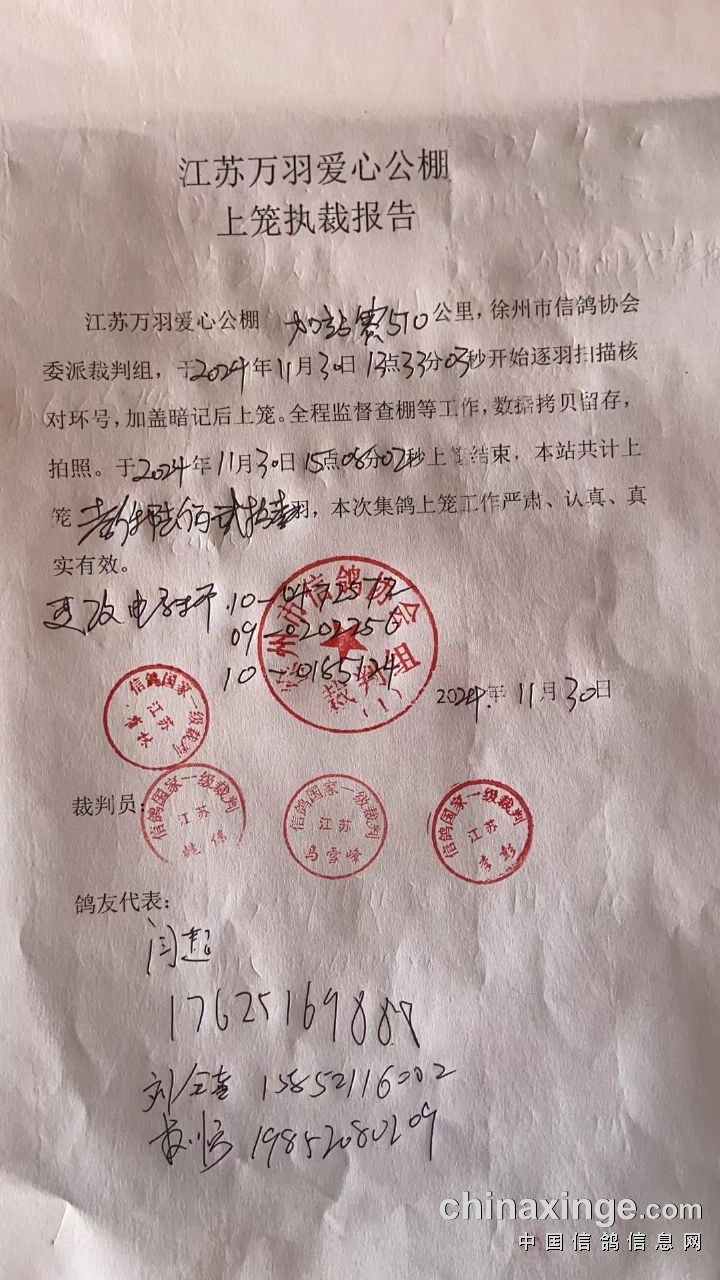 江苏万羽爱心公棚
上笼执裁报告
江苏万羽爱心公棚 加站赛510公里,徐州市信鸽协会
委派裁判组,于2024年11月30日13点33分03秒开始逐羽扫描核
对环号,加盖暗记后上笼。全程监督查棚等工作,数据拷贝留存,
拍照。于2024年11月30日15点08分02秒上笼结束,本站共计上
笼 羽,本次集鸽上笼工作严肃、认真、真
实有效。
更改电子环 10-0472572
09-0202256
10-0165124
徐州市信鸽协会
裁判组
(1)
2024年11月30日
信鸽国家一级裁判
江苏
裁判员:
信鸽国家一级裁判
江苏
信鸽国家一级裁判
江苏
马雪峰
信鸽国家一级裁判
江苏
李彭
鸽友代表:
闫超
17625169887
刘 15852116002
19852080209
chinaxinge.com
中国信鸽信息网